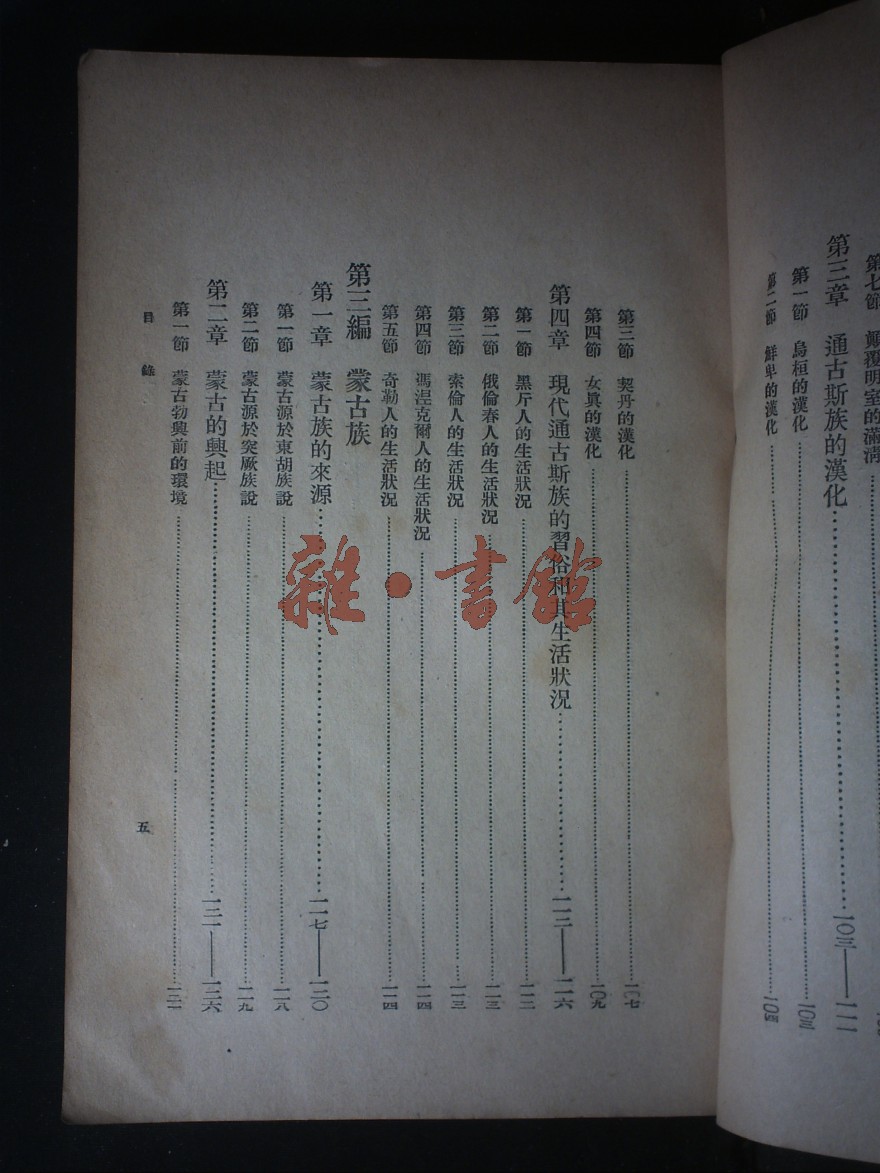 第七節　顛覆明室的滿清
第三章　通古斯族的漢化……一〇三——一一一
第一節　烏桓的漢化……一〇三
第二節　鮮卑的漢化……一〇四
第三節　契丹的漢化……一〇七
第四節　女眞的漢化……一〇九
第四章　現代通古斯族的習俗和其生活狀況……一一二——一一六
第一節　黑斤人的生活狀況……一一二
第二節　俄倫春人的生活狀況……一一三
第三節　索倫人的生活狀況……一一三
第四節　瑪涅克爾人的生活狀況……一一四
第五節　奇勒人的生活狀況……一一四
第三編　蒙古族
第一章　蒙古族的來源……一一七——一二〇
第一節　蒙古源於東胡族說……一一八
第二節　蒙古源於突厥族說……一一九
第二章　蒙古的興起……一二一——一二六
第一節　蒙古勃興前的環境……一二一
目錄
五
雜·書館